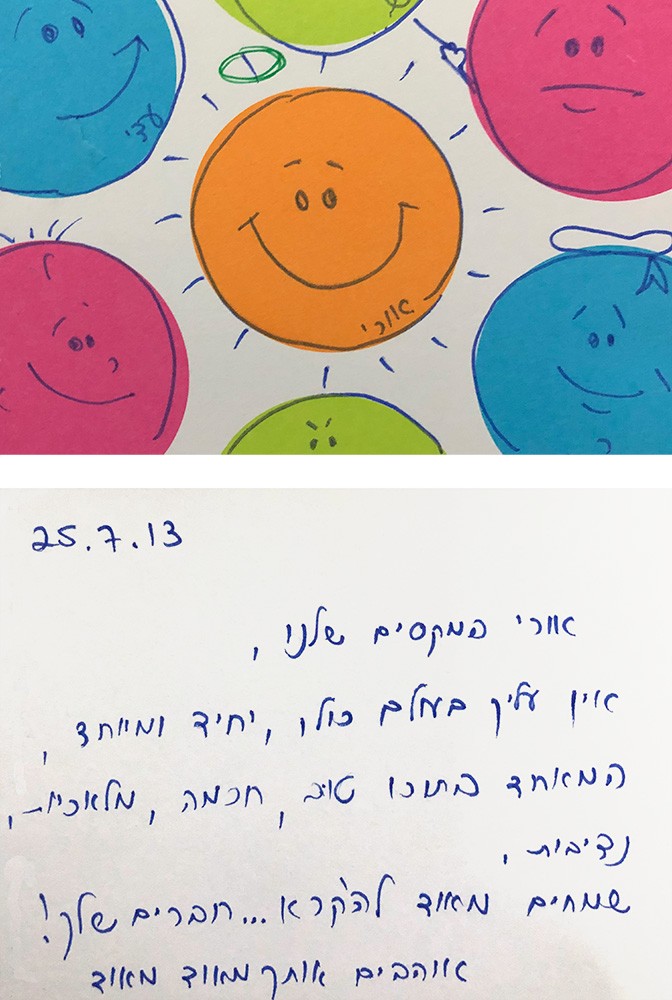 עדי
אורי
25.7.13
אורי המקסים שלנו,
אין עליך בעולם כולו, יחיד ומיוחד,
המאחד בתוכו טוב, חכמה, מלאכיות,
נדיבות,
שמחים מאוד להקרא... חברים שלך!
אוהבים אותך מאוד מאוד